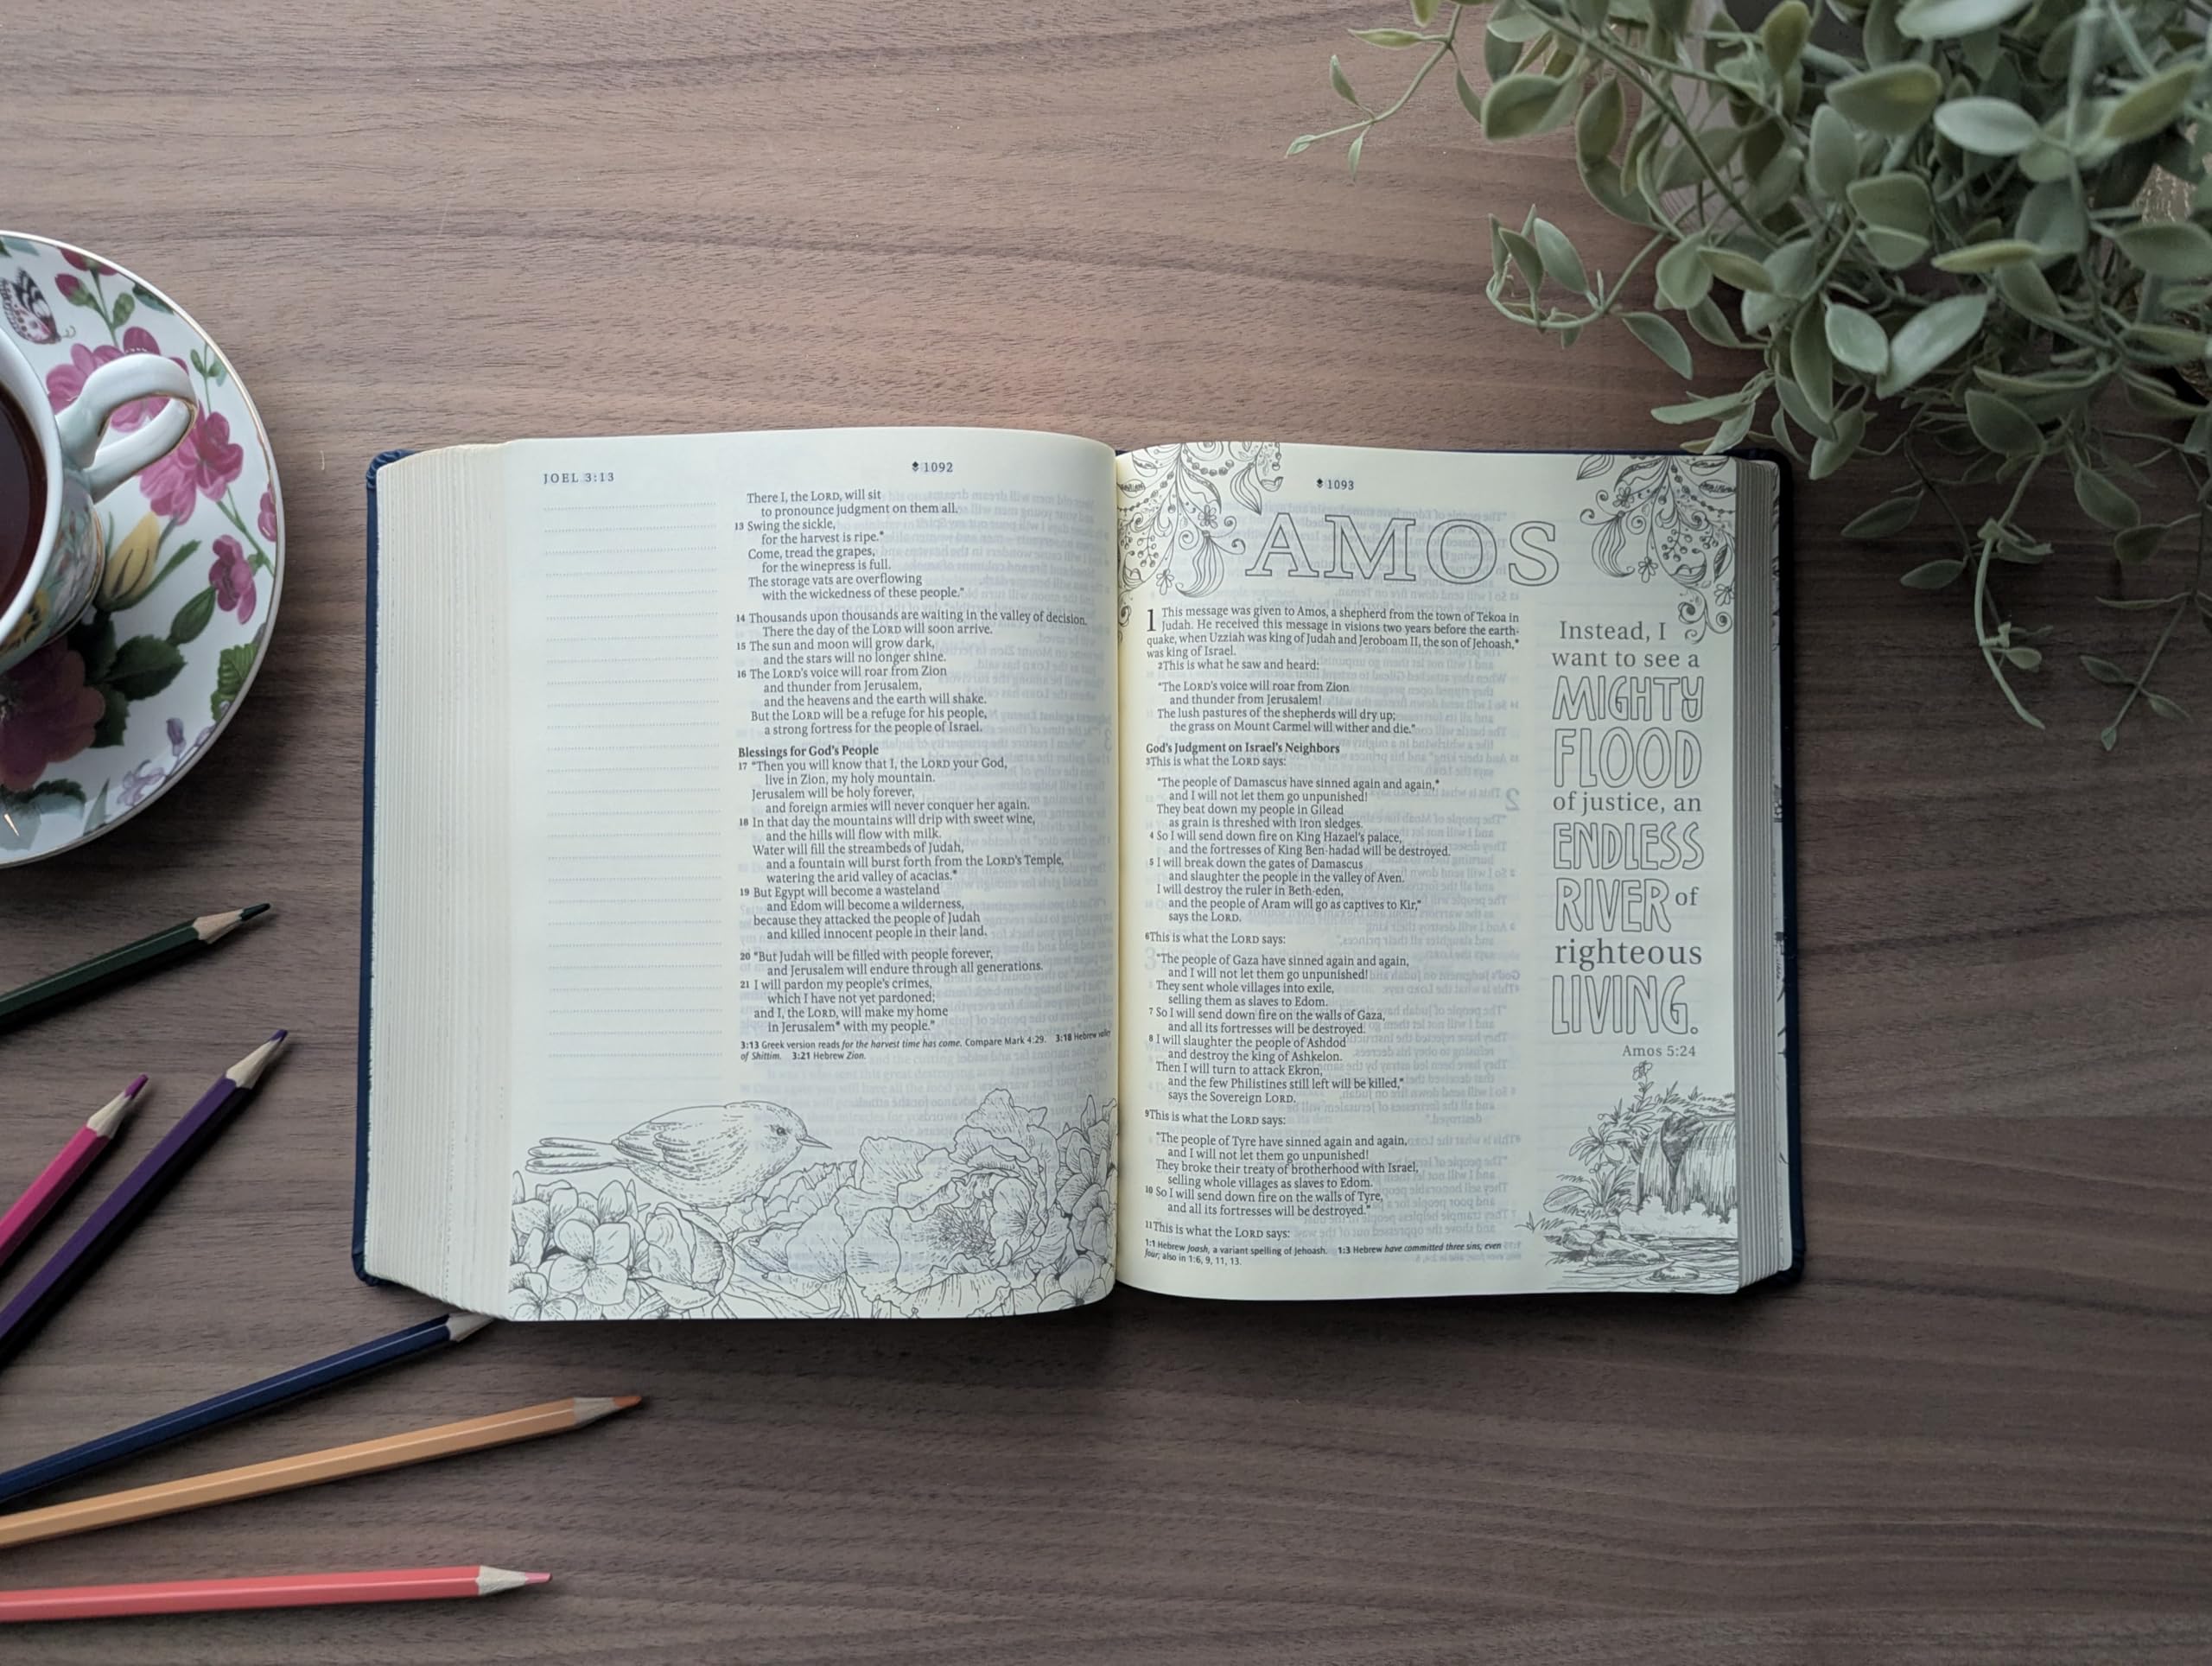 JOEL 3:13
1092
There I, the LORD, will sit
to pronounce judgment on them all.
13 Swing the sickle,
for the harvest is ripe.*
Come, tread the grapes,
for the winepress is full.
The storage vats are overflowing
with the wickedness of these people."
14 Thousands upon thousands are waiting in the valley of decision.
There the day of the LORD will soon arrive.
15 The sun and moon will grow dark,
and the stars will no longer shine.
16 The LORD's voice will roar from Zion
and thunder from Jerusalem,
and the heavens and the earth will shake.
But the LORD will be a refuge for his people,
a strong fortress for the people of Israel.
Blessings for God's People
17 "Then you will know that I, the LORD your God,
live in Zion, my holy mountain.
Jerusalem will be holy forever,
and foreign armies will never conquer her again.
18 In that day the mountains will drip with sweet wine,
and the hills will flow with milk.
Water will fill the streambeds of Judah,
and a fountain will burst forth from the LORD's Temple,
watering the arid valley of acacias.*
19 But Egypt will become a wasteland
and Edom will become a wilderness,
because they attacked the people of Judah
and killed innocent people in their land.
20 "But Judah will be filled with people forever,
and Jerusalem will endure through all generations.
21 I will pardon my people's crimes,
which I have not yet pardoned;
and I, the LORD, will make my home
in Jerusalem* with my people."
3:13 Greek version reads for the harvest time has come. Compare Mark 4:29. 3:18 Hebrew valley
of Shittim. 3:21 Hebrew Zion.
1093
AMOS
1 This message was given to Amos, a shepherd from the town of Tekoa in
Judah. He received this message in visions two years before the earth-
quake, when Uzziah was king of Judah and Jeroboam II, the son of Jehoash,*
was king of Israel.
2 This is what he saw and heard:
"The LORD's voice will roar from Zion
and thunder from Jerusalem!
The lush pastures of the shepherds will dry up;
the grass on Mount Carmel will wither and die."
God's Judgment on Israel's Neighbors
3 This is what the LORD says:
"The people of Damascus have sinned again and again,*
and I will not let them go unpunished!
They beat down my people in Gilead
as grain is threshed with iron sledges.
4 So I will send down fire on King Hazael's palace,
and the fortresses of King Ben-hadad will be destroyed.
5 I will break down the gates of Damascus
and slaughter the people in the valley of Aven.
I will destroy the ruler in Beth-eden,
and the people of Aram will go as captives to Kir,"
says the LORD.
6 This is what the LORD says:
"The people of Gaza have sinned again and again,
and I will not let them go unpunished!
They sent whole villages into exile,
selling them as slaves to Edom.
7 So I will send down fire on the walls of Gaza,
and all its fortresses will be destroyed.
8 I will slaughter the people of Ashdod
and destroy the king of Ashkelon.
Then I will turn to attack Ekron,
and the few Philistines still left will be killed,"
says the Sovereign LORD.
9 This is what the LORD says:
"The people of Tyre have sinned again and again,
and I will not let them go unpunished!
They broke their treaty of brotherhood with Israel,
selling whole villages as slaves to Edom.
10 So I will send down fire on the walls of Tyre,
and all its fortresses will be destroyed."
11 This is what the LORD says:
1:1 Hebrew Joash, a variant spelling of Jehoash. 1:3 Hebrew have committed three sins, even
four; also in 1:6, 9, 11, 13.
Instead, I
want to see a
MIGHTY
FLOOD
of justice, an
ENDLESS
RIVER of
righteous
LIVING.
Amos 5:24